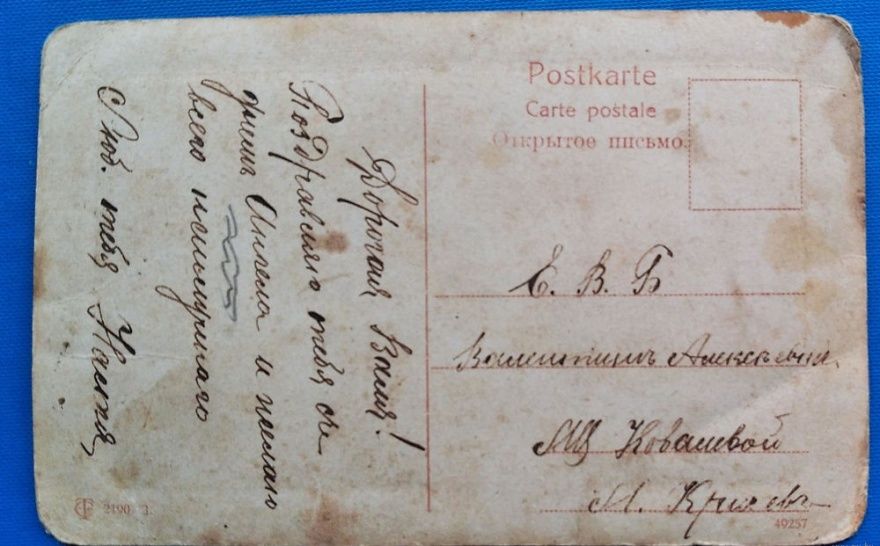 Postkarte
Carte postale
Открытое письмо.
Дорогая Валя!
Поздравляю тебя съ
днемъ Ангела и желаю
всего
Люб. тебя Настя,
Е. В. Б
Валентинѣ Алексѣевнѣ,
Ковалевой
2190 3.
49257